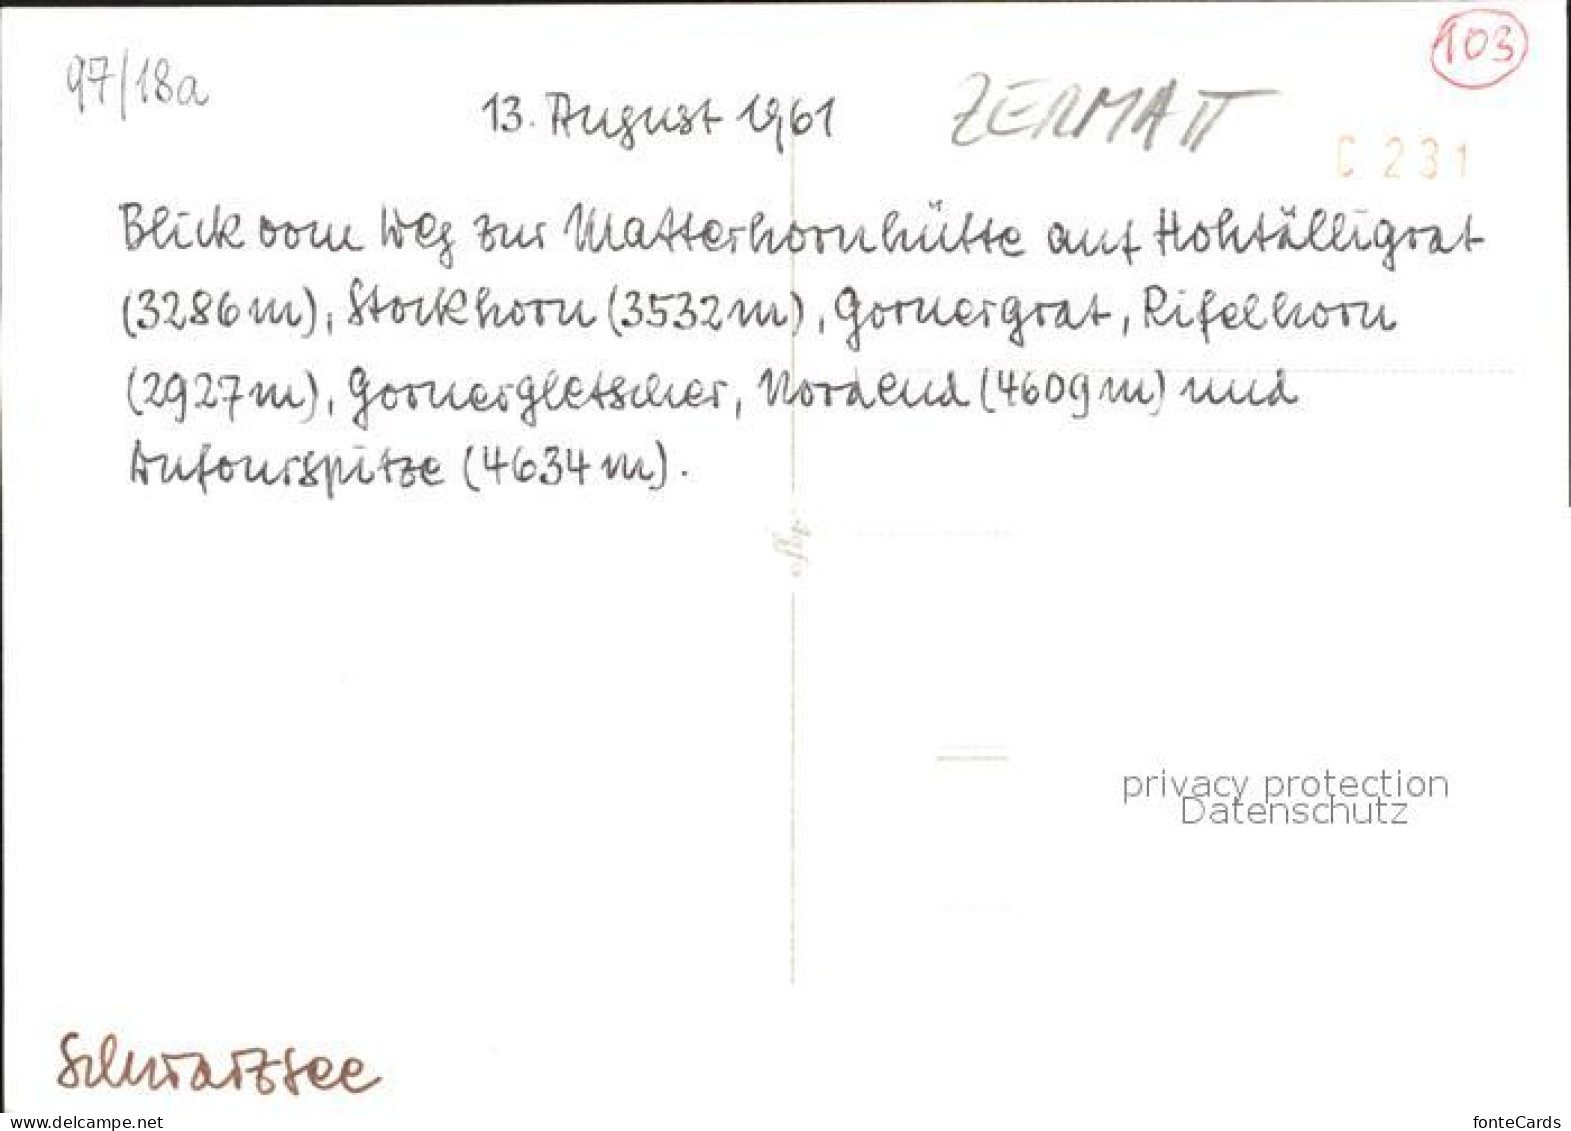 97/18a
103
13. August 1961
ZERMATT
C 231
Blick vom Weg zur Matterhornhütte auf Hohtälligrat
(3286m), Stockhorn (3532m), Gornergrat, Rifelhorn
(2927m), Gornergletscher, Nordend (4609m) und
Dufourspitze (4634m).
Agfa
privacy protection
Datenschutz
Schwarzsee
www.delcampe.net
fonteCards